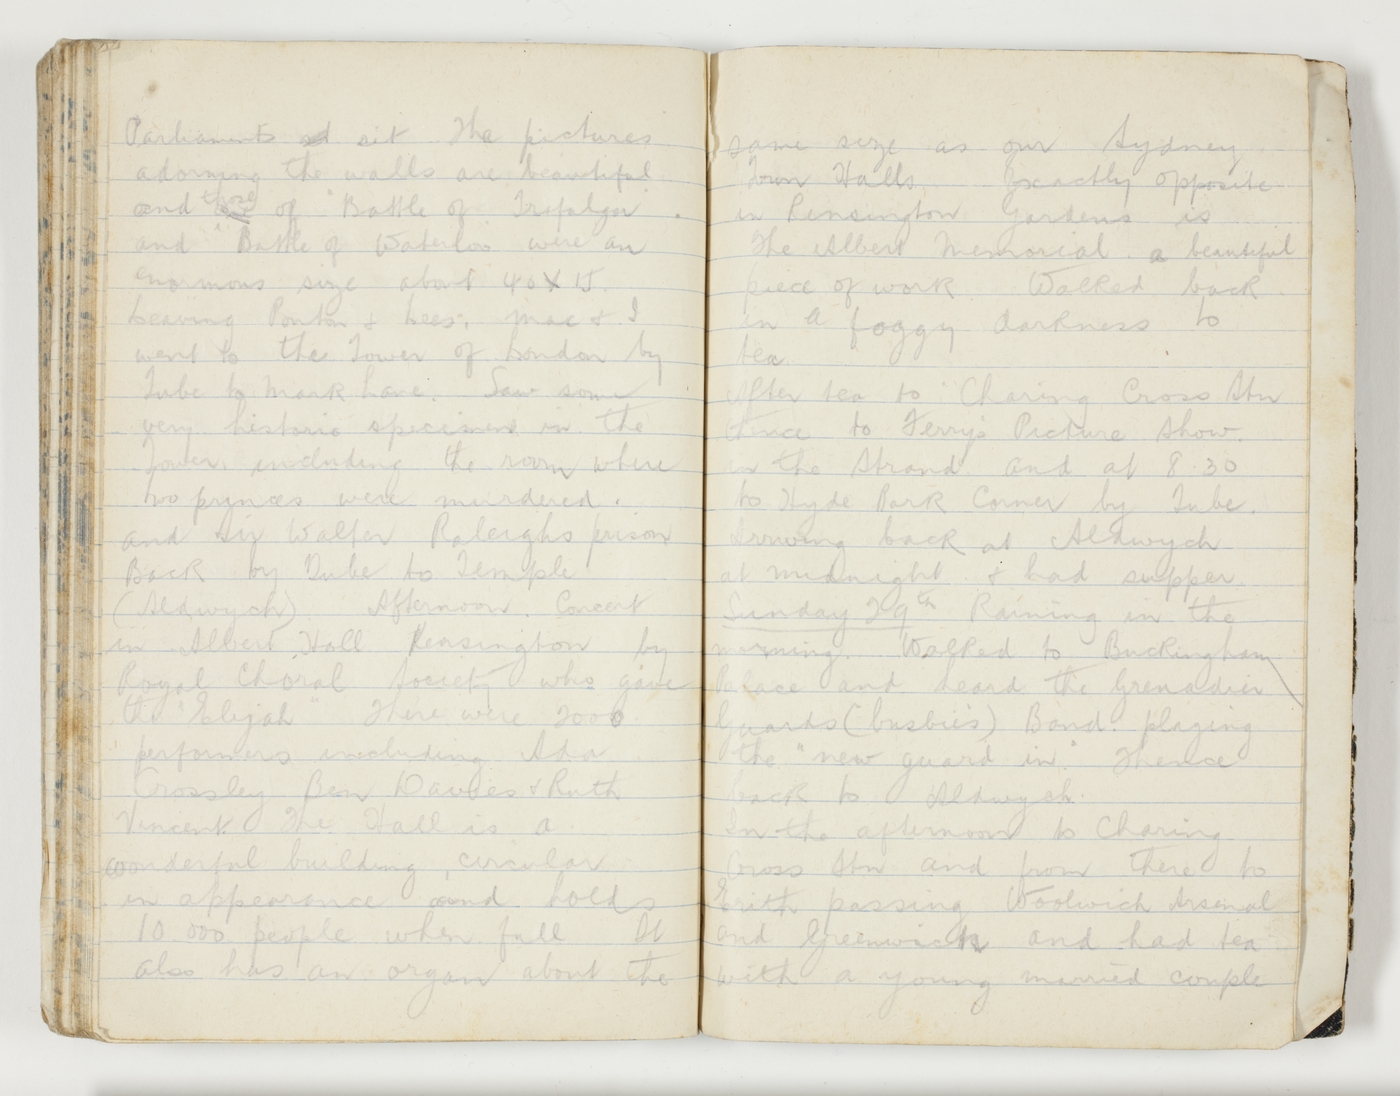 Parliaments sit The pictures
adorning the walls are beautiful
and those of "Battle of Trafalgar
and "Battle of Waterloo were an
enormous size about 40 X 15.
Leaving Ponton & Lees, Mac & I
went to the Tower of London by
Tube to Mark Lane. Saw some
very historic specimens in the
Tower, including the room where
two princes were murdered.
and Sir Walter Raleighs prison
Back by Tube to Temple
(Aldwych) Afternoon. Concert
in Albert Hall Kensington by
Royal Choral Society who gave
the "Elijah" There were 2000
performers including Ada
Crossley Ben Davies & Ruth
Vincent. The Hall is a
wonderful building, circular
in appearance and holds
10.000 people when full It
also has an organ about the
same size as our Sydney
Town Halls. Exactly opposite
in Kensington Gardens is
The Albert Memorial. a beautiful
piece of work Walked back
in a foggy darkness to
tea.
After tea to Charing Cross Stn
thence to Ferrys Picture Show.
in the Strand and at 8.30
to Hyde Park Corner by Tube.
Arriving back at Aldwych
at midnight & had supper
Sunday 29th Raining in the
morning. Walked to Buckingham
Palace and heard the Grenadier
Guards (busbies) Band playing
the "new guard in." Thence
back to Aldwych.
In the afternoon to Charing
Cross Stn and from there to
Erith passing Woolwich Arsenal
and Greenwich and had tea
with a young married couple